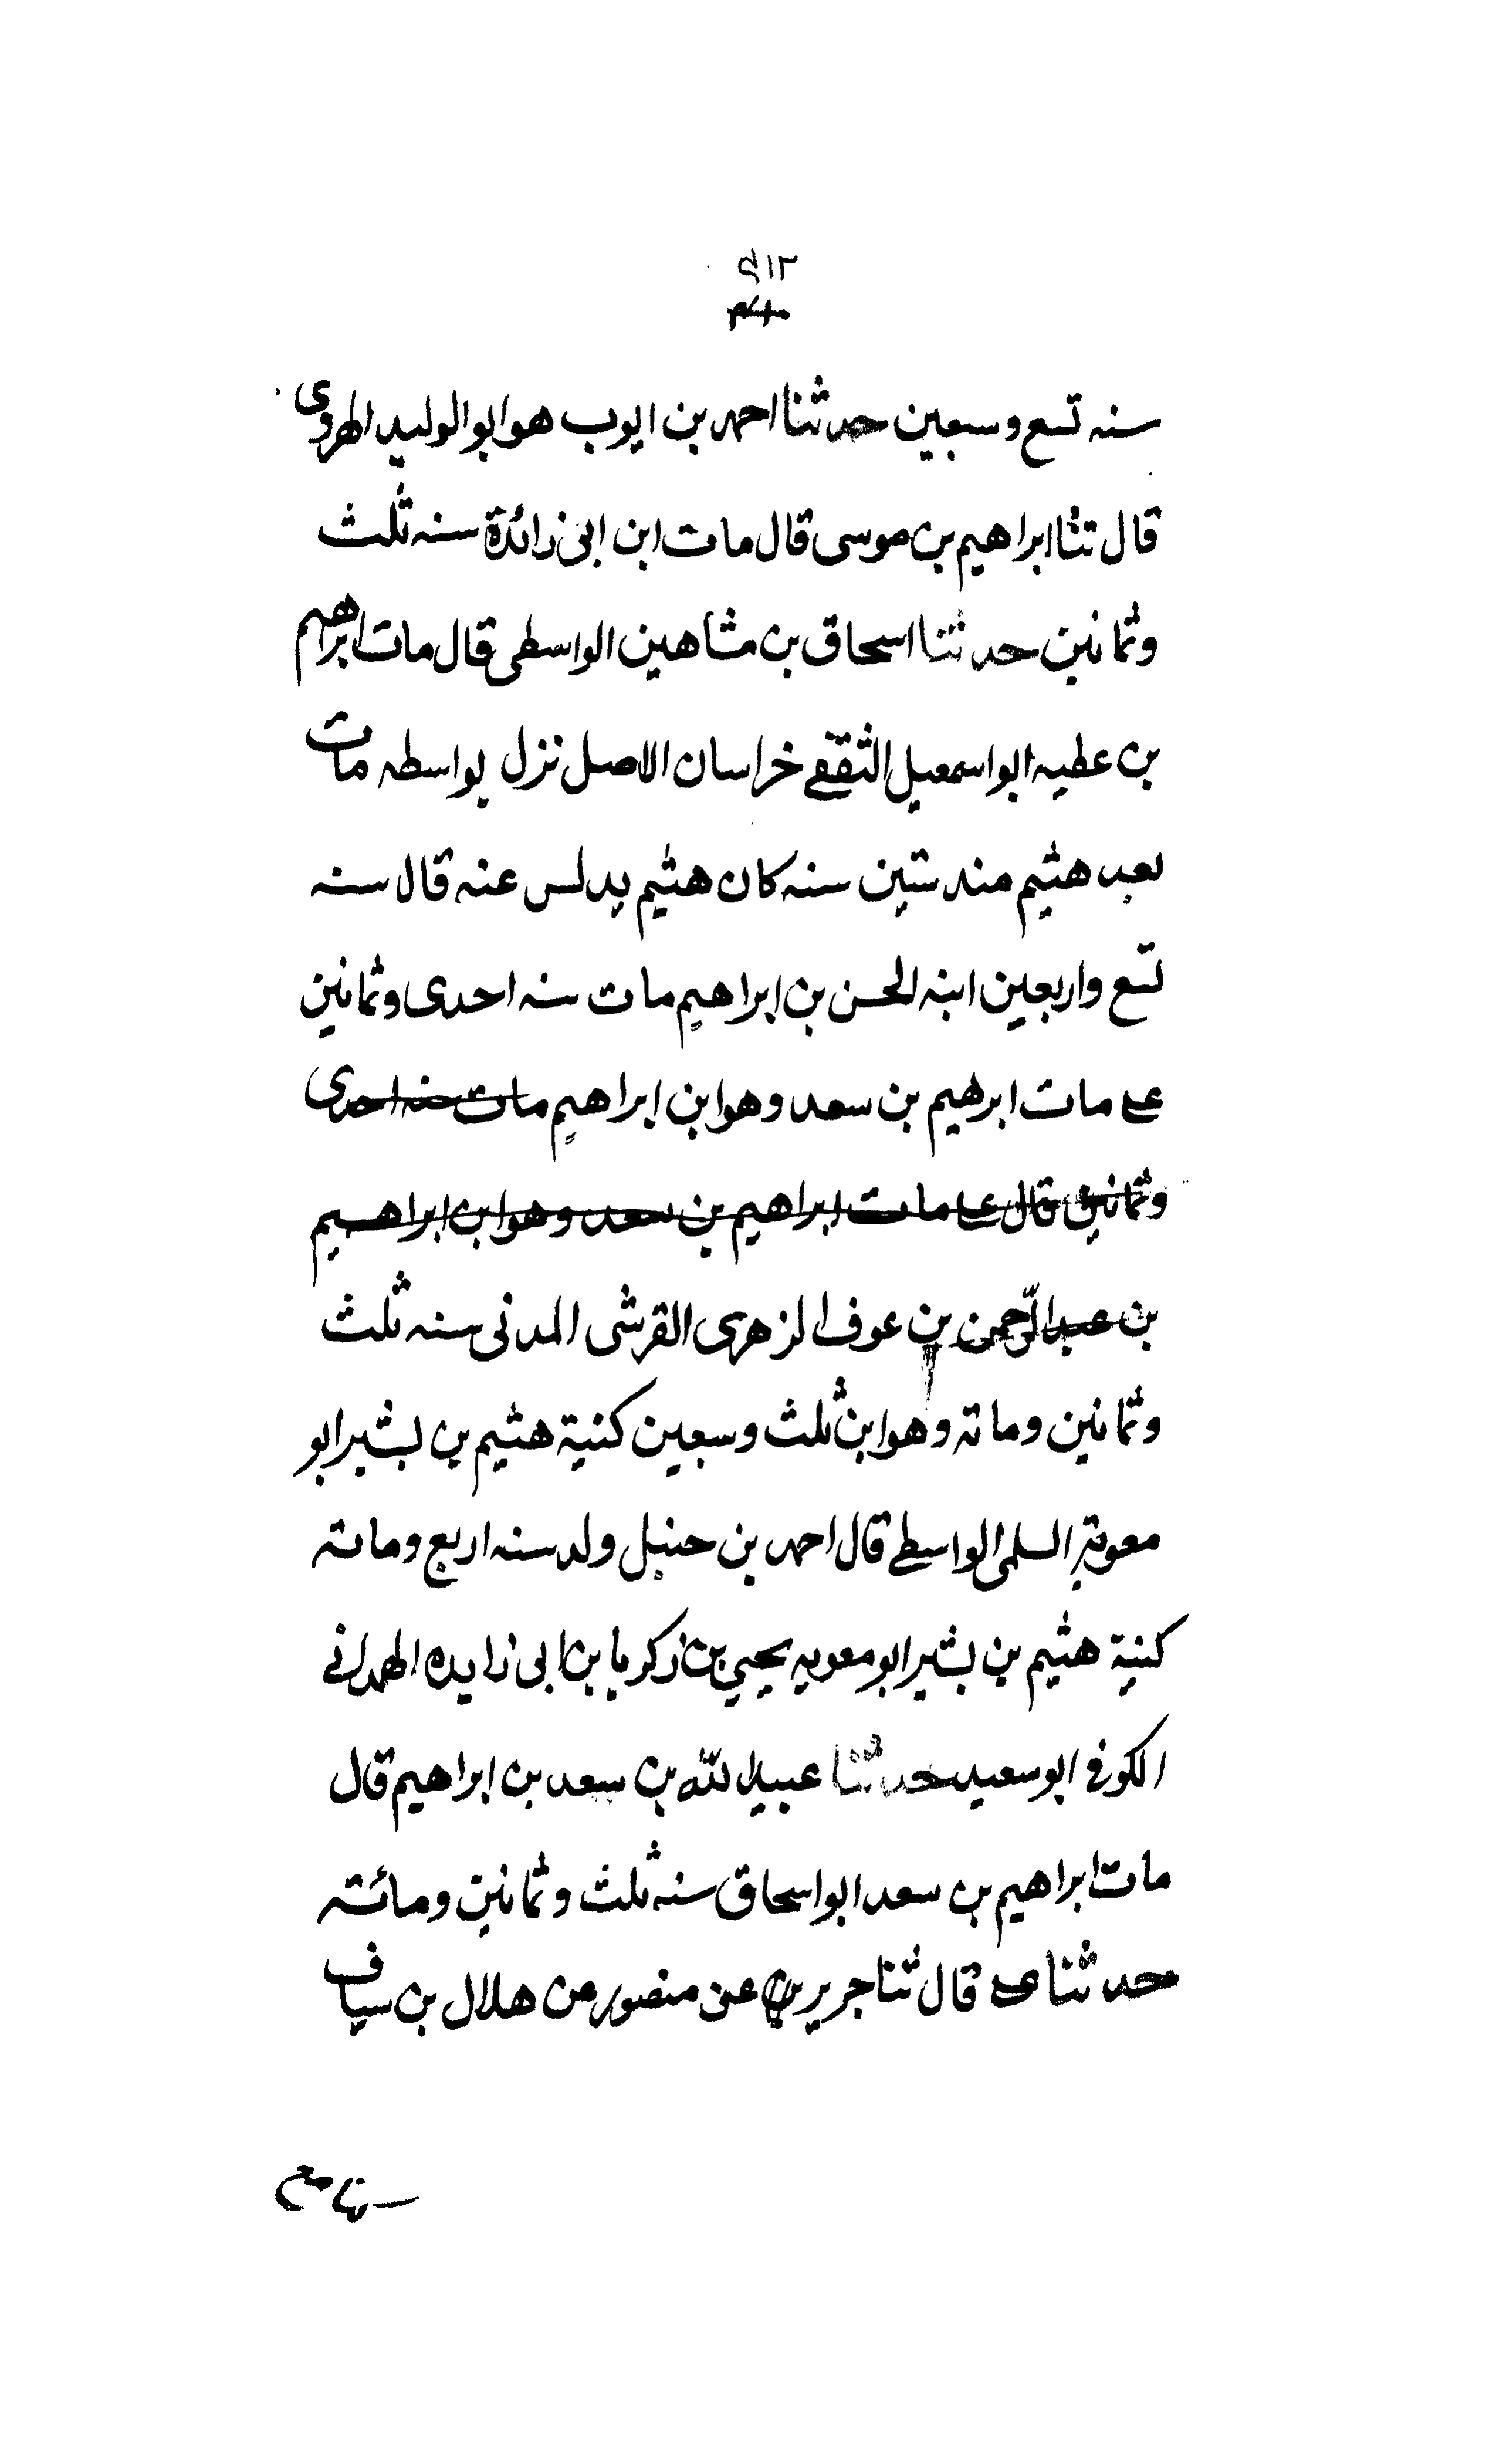 سنه تسع وسبعين حدثنا احمد بن ايوب هو ابو الوليد الهروى
قال ثنا ابراهيم بن موسى قال مات ابن ابى زائدة سنه ثلث
وثمانين حدثنا اسحاق بن شاهين الواسطى قال مات ابراهيم
بن عطيه ابو اسمعيل الثقفے خراسان الاصل نزل بواسطه مات
بعد هشيم منذ ستين سنه كان هشيم يدلس عنه قال سنه
تسع واربعين ابنه الحسن بن ابراهيم مات سنه احدى وثمانين
على مات ابرهيم بن سعد وهو ابن ابراهيم مات سنه احدى
وثمانين قال على مات ابراهيم بن سعد وهو ابن ابراهيم
بن عبد الرّحمن بن عوف الزهرى القرشى المدنى سنه ثلث
وثمانين ومائة وهو ابن ثلث وسبعين كنية هشيم بن بشير ابو
معوية السلمى الواسطے قال احمد بن حنبل ولد سنه اربع ومائة
كنية هشيم بن بشير ابو معويه يحيي بن زكريا بن ابى زايده الهمدانے
الكوفى ابو سعيد حدثنا عبيد الله بن سعد بن ابراهيم قال
مات ابراهيم بن سعد ابو اسحاق سنه ثلث وثمانين ومائة
حدثنا على قال ثنا جرير عن منصور عن هلال بن سياف